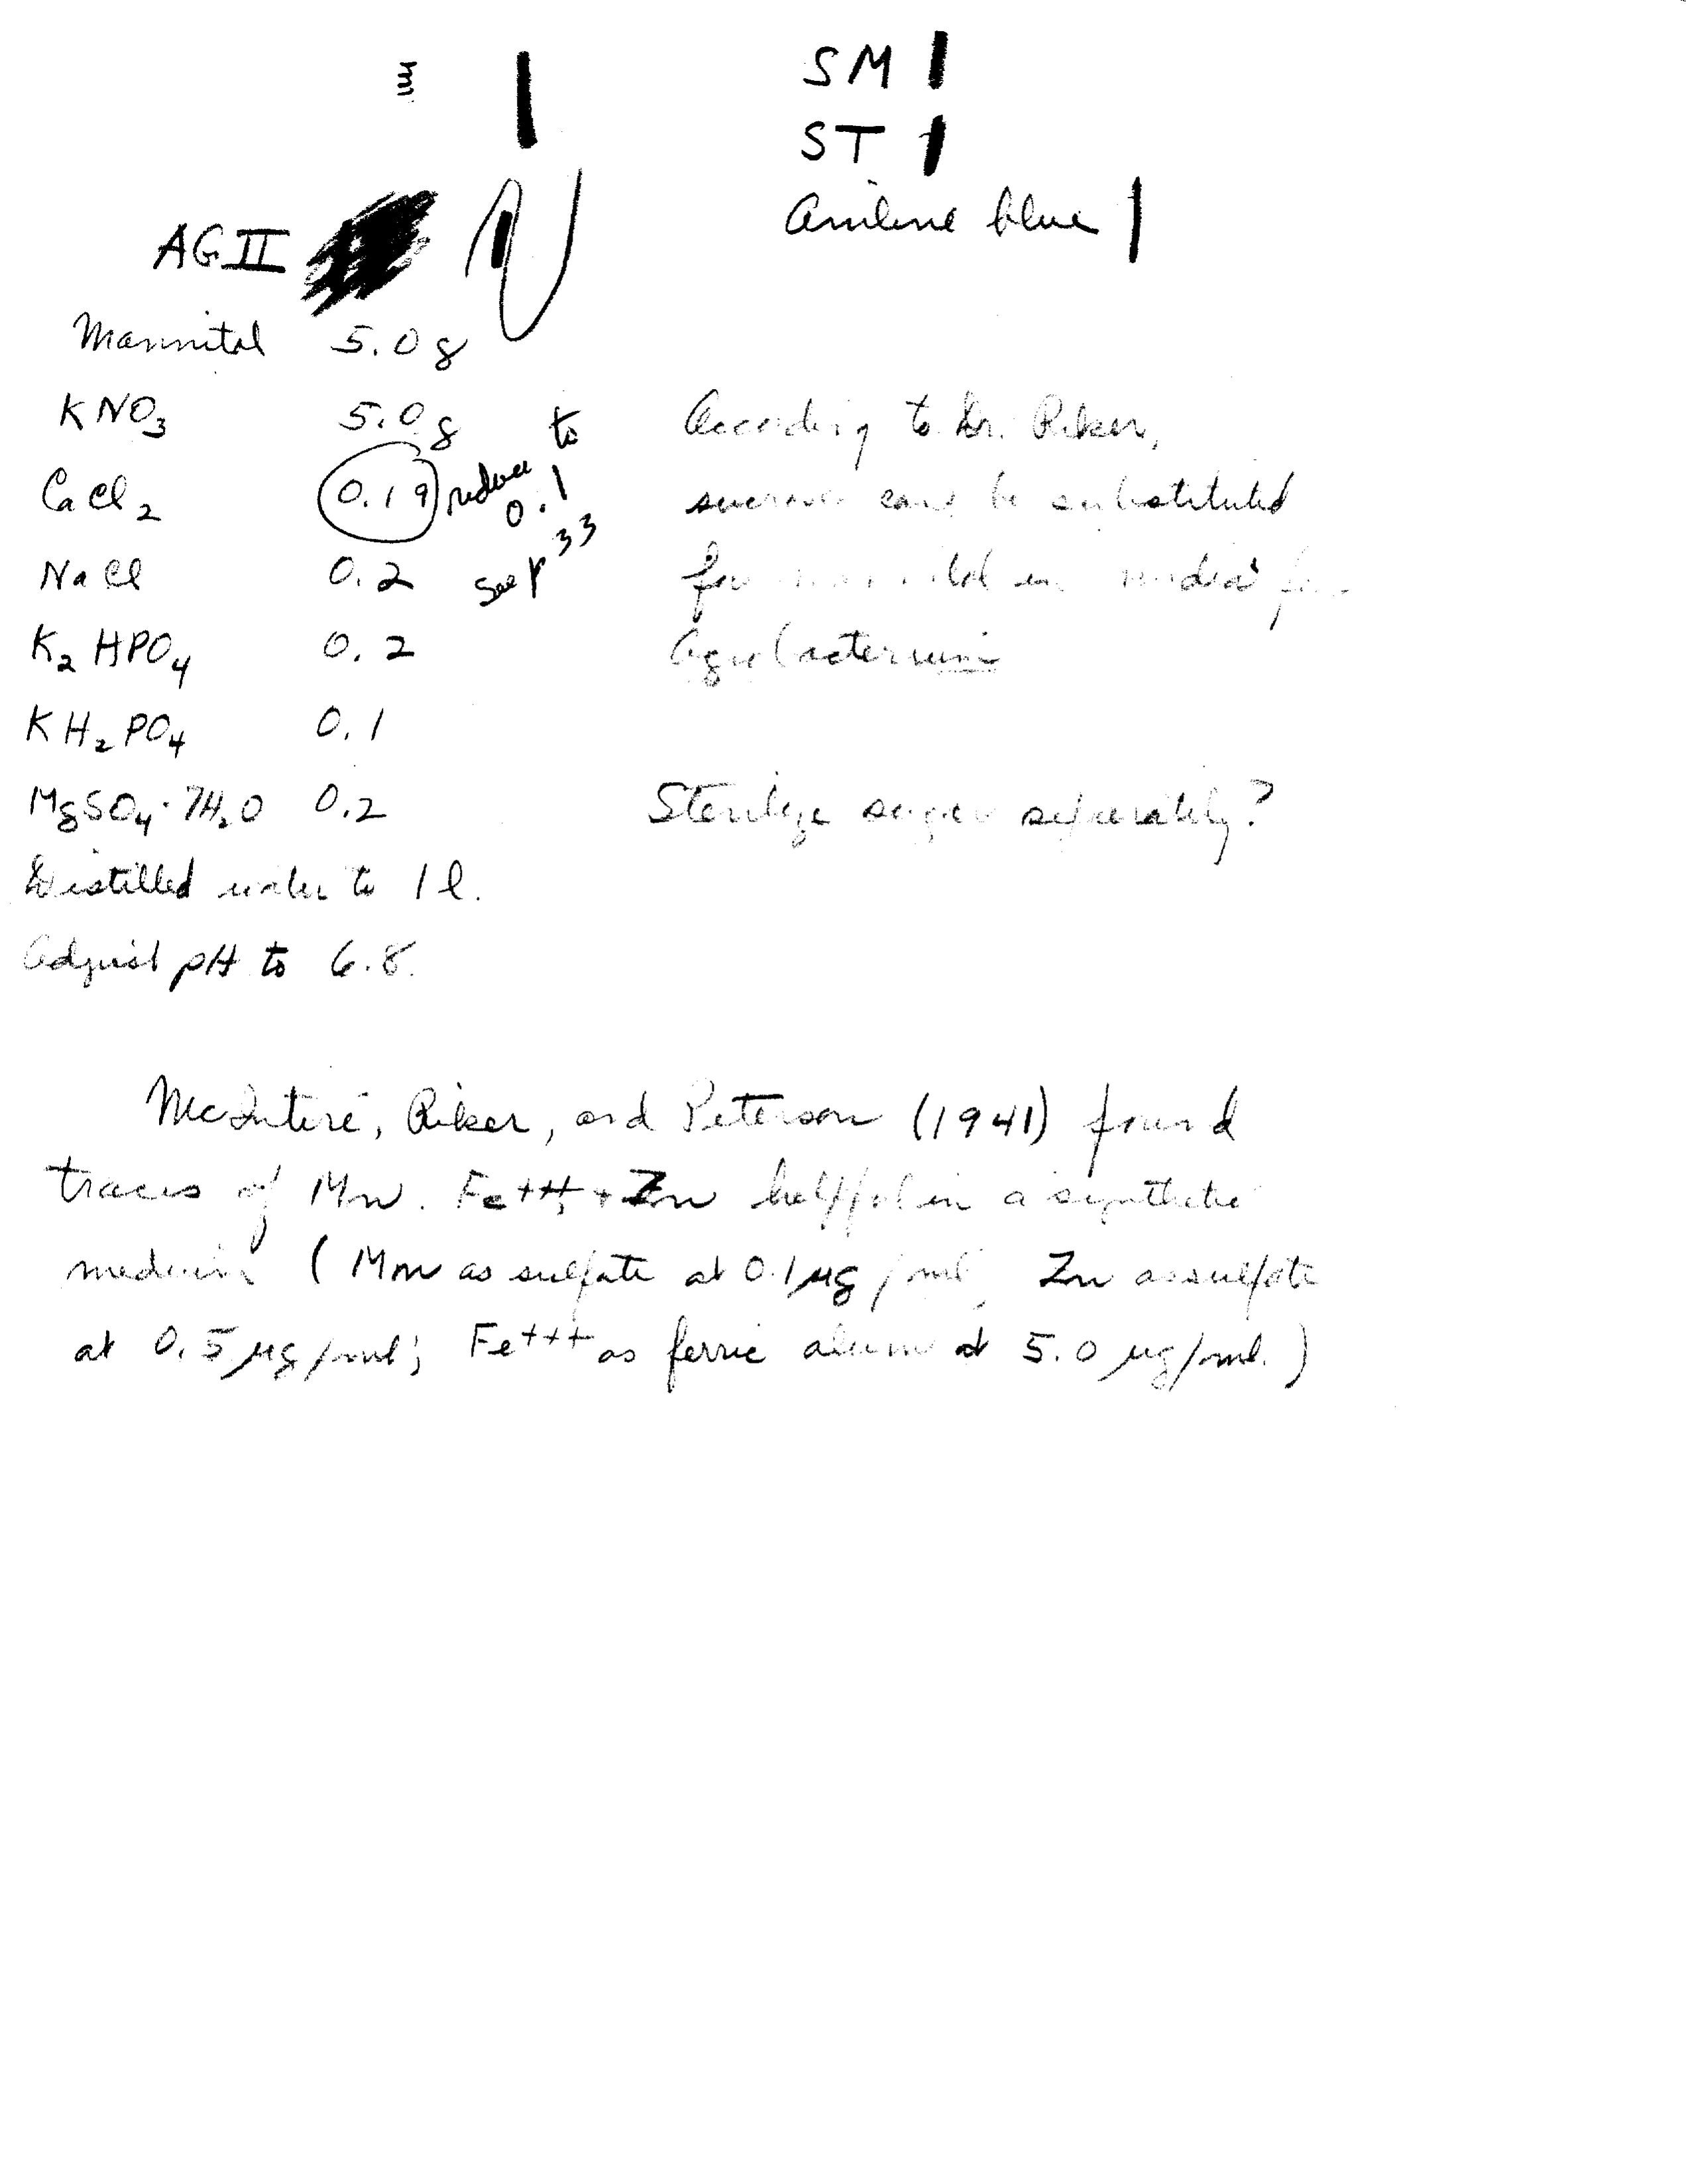 SM
ST
Aniline blue
AG II
Mannitol 5.0 g
KNO3 5.0 g
CaCl2 0.19 reduce to 0.1
NaCl 0.2 see p 33
K2HPO4 0.2
KH2PO4 0.1
MgSO4·7H2O 0.2
Distilled water to 1 l.
Adjust pH to 6.8.
According to Dr. Riker,
sucrose can be substituted
for mannitol in media for
Agrobacterium
Sterilize sugar separately?
McIntire, Riker, and Peterson (1941) found
traces of Mn. Fe+++, + Zn helpful in a synthetic
medium (Mn as sulfate at 0.1 µg/ml, Zn as sulfate
at 0.5 µg/ml; Fe+++ as ferric alum at 5.0 µg/ml.)